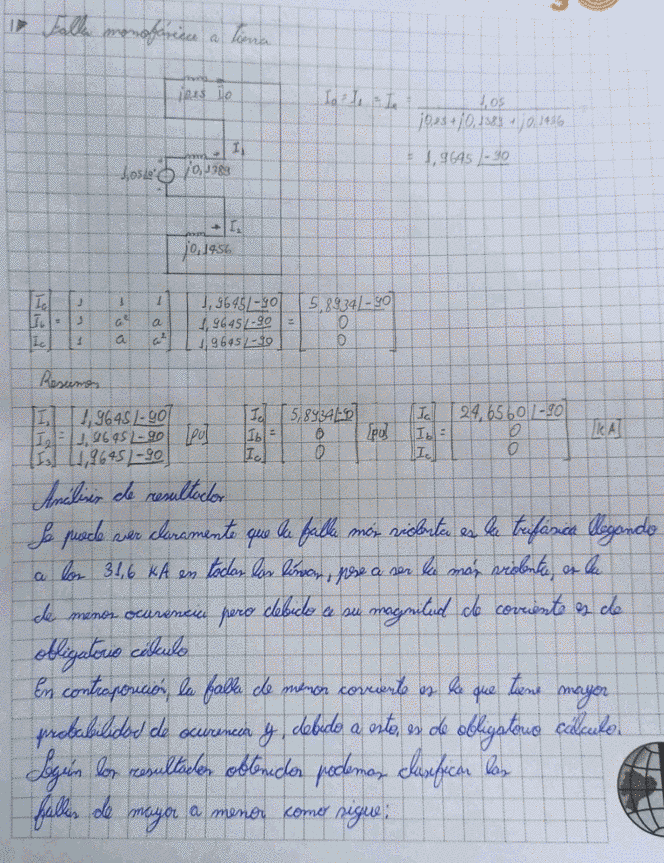 1▶ Falla monofásica a tierra
j0,25 I0
I0 = I1 = I2 = 1,05
j0,25 + j0,1389 + j0,1456
I1
= 1,9645 ∠-90
1,05∠0° j0,1389
I2
j0,1456
[Ia Ib Ic] = [1 1 1; 1 a² a; 1 a a²] [1,9645∠-90; 1,9645∠-90; 1,9645∠-90] = [5,8934∠-90; 0; 0]
Resumen
[I1 I2 I3] = [1,9645∠-90; 1,9645∠-90; 1,9645∠-90] [pu] [Ia Ib Ic] = [5,8934∠-90; 0; 0] [pu] [Ia Ib Ic] = [24,6560∠-90; 0; 0] [kA]
Análisis de resultados
Se puede ver claramente que la falla más violenta es la trifásica llegando
a los 31,6 KA en todas las líneas, pese a ser la más violenta, es la
de menos ocurencia pero debido a su magnitud de corriente es de
obligatorio cálculo
En contraposición, la falla de menor corriente es la que tiene mayor
probabilidad de ocurencia y, debido a esto, es de obligatorio cálculo.
Según los resultados obtenidos podemos clasificar las
fallas de mayor a menor como sigue: